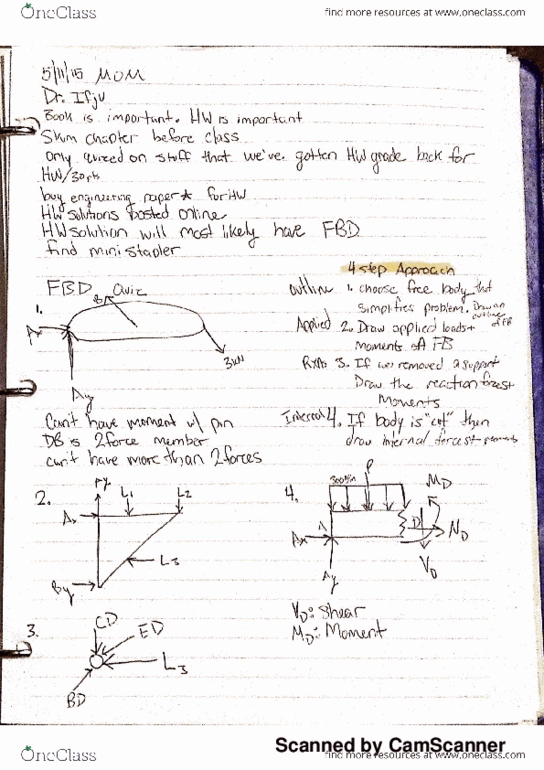 OneClass
find more resources at www.oneclass.com
5/11/15 MOM
Dr. Ifju
Book is important. HW is important
Skim chapter before class
Only quized on stuff that we've gotten HW grade back for
HW/30pts
buy engineering paper* for HW
HW solutions posted online
HW solution will most likely have FBD
find mini stapler
FBD Quiz
1.
B
Ax
3kN
Ay
Can't have moment w/ pin
DB is 2 force member
can't have more than 2 forces
4 step Approach
outline 1. choose free body that
simplifies problem. Draw an
outline of FB
Applied 2. Draw applied loads +
moments of FB
RXNs 3. If we removed a support
Draw the reaction forces +
Moments
Internal 4. If body is "cut" then
draw internal forces + moments
2.
L1
L2
Ax
L3
By
3.
CD
ED
L3
BD
4.
P
MD
A
D
Ax
ND
Ay
VD
VD: Shear
MD: Moment
Scanned by CamScanner
OneClass
find more resources at www.oneclass.com